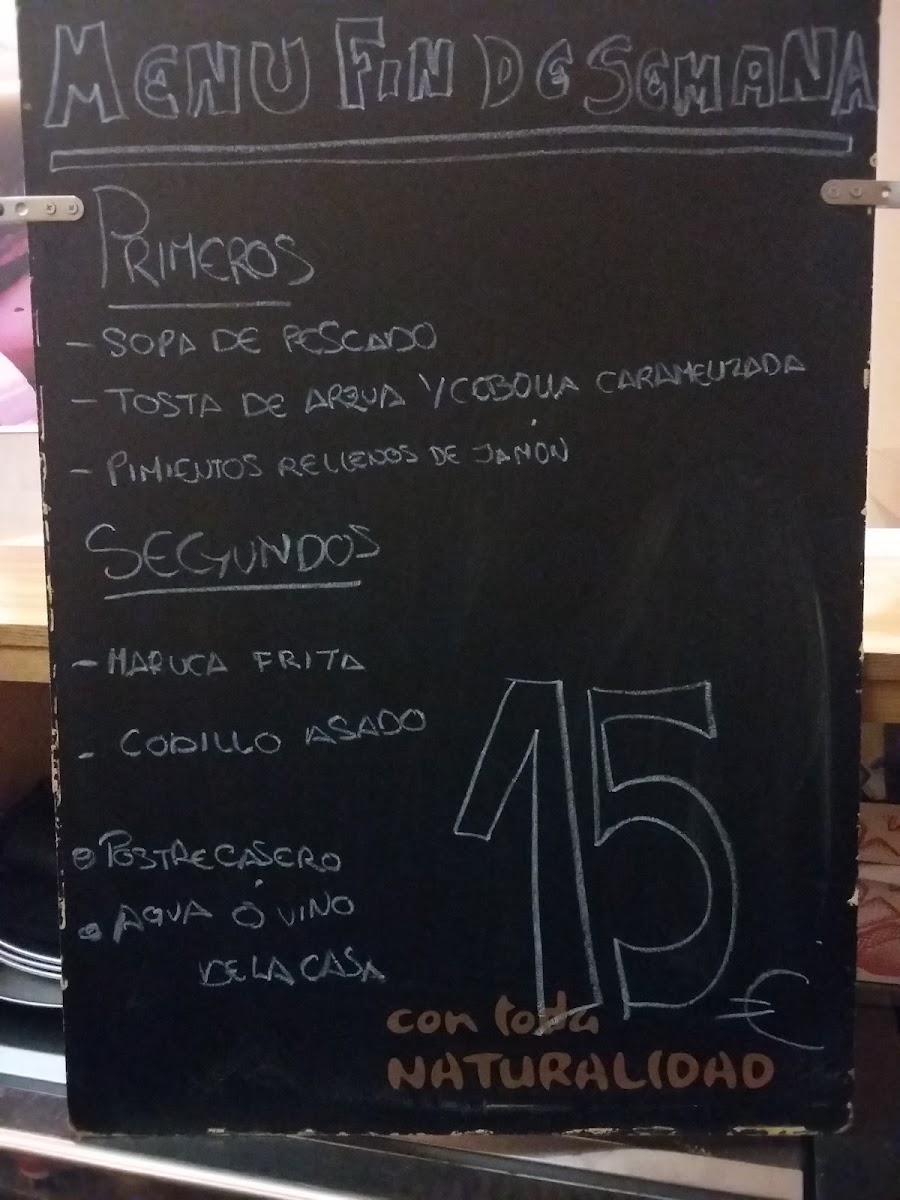 MENU FIN DE SEMANA
PRIMEROS
- SOPA DE PESCADO
- TOSTA DE ARZUA Y CEBOLLA CARAMELIZADA
- PIMIENTOS RELLENOS DE JAMÓN
SEGUNDOS
- MARUCA FRITA
- CODILLO ASADO
• POSTRE CASERO
• AGUA Ó VINO
DE LA CASA
15 €
con toda
NATURALIDAD